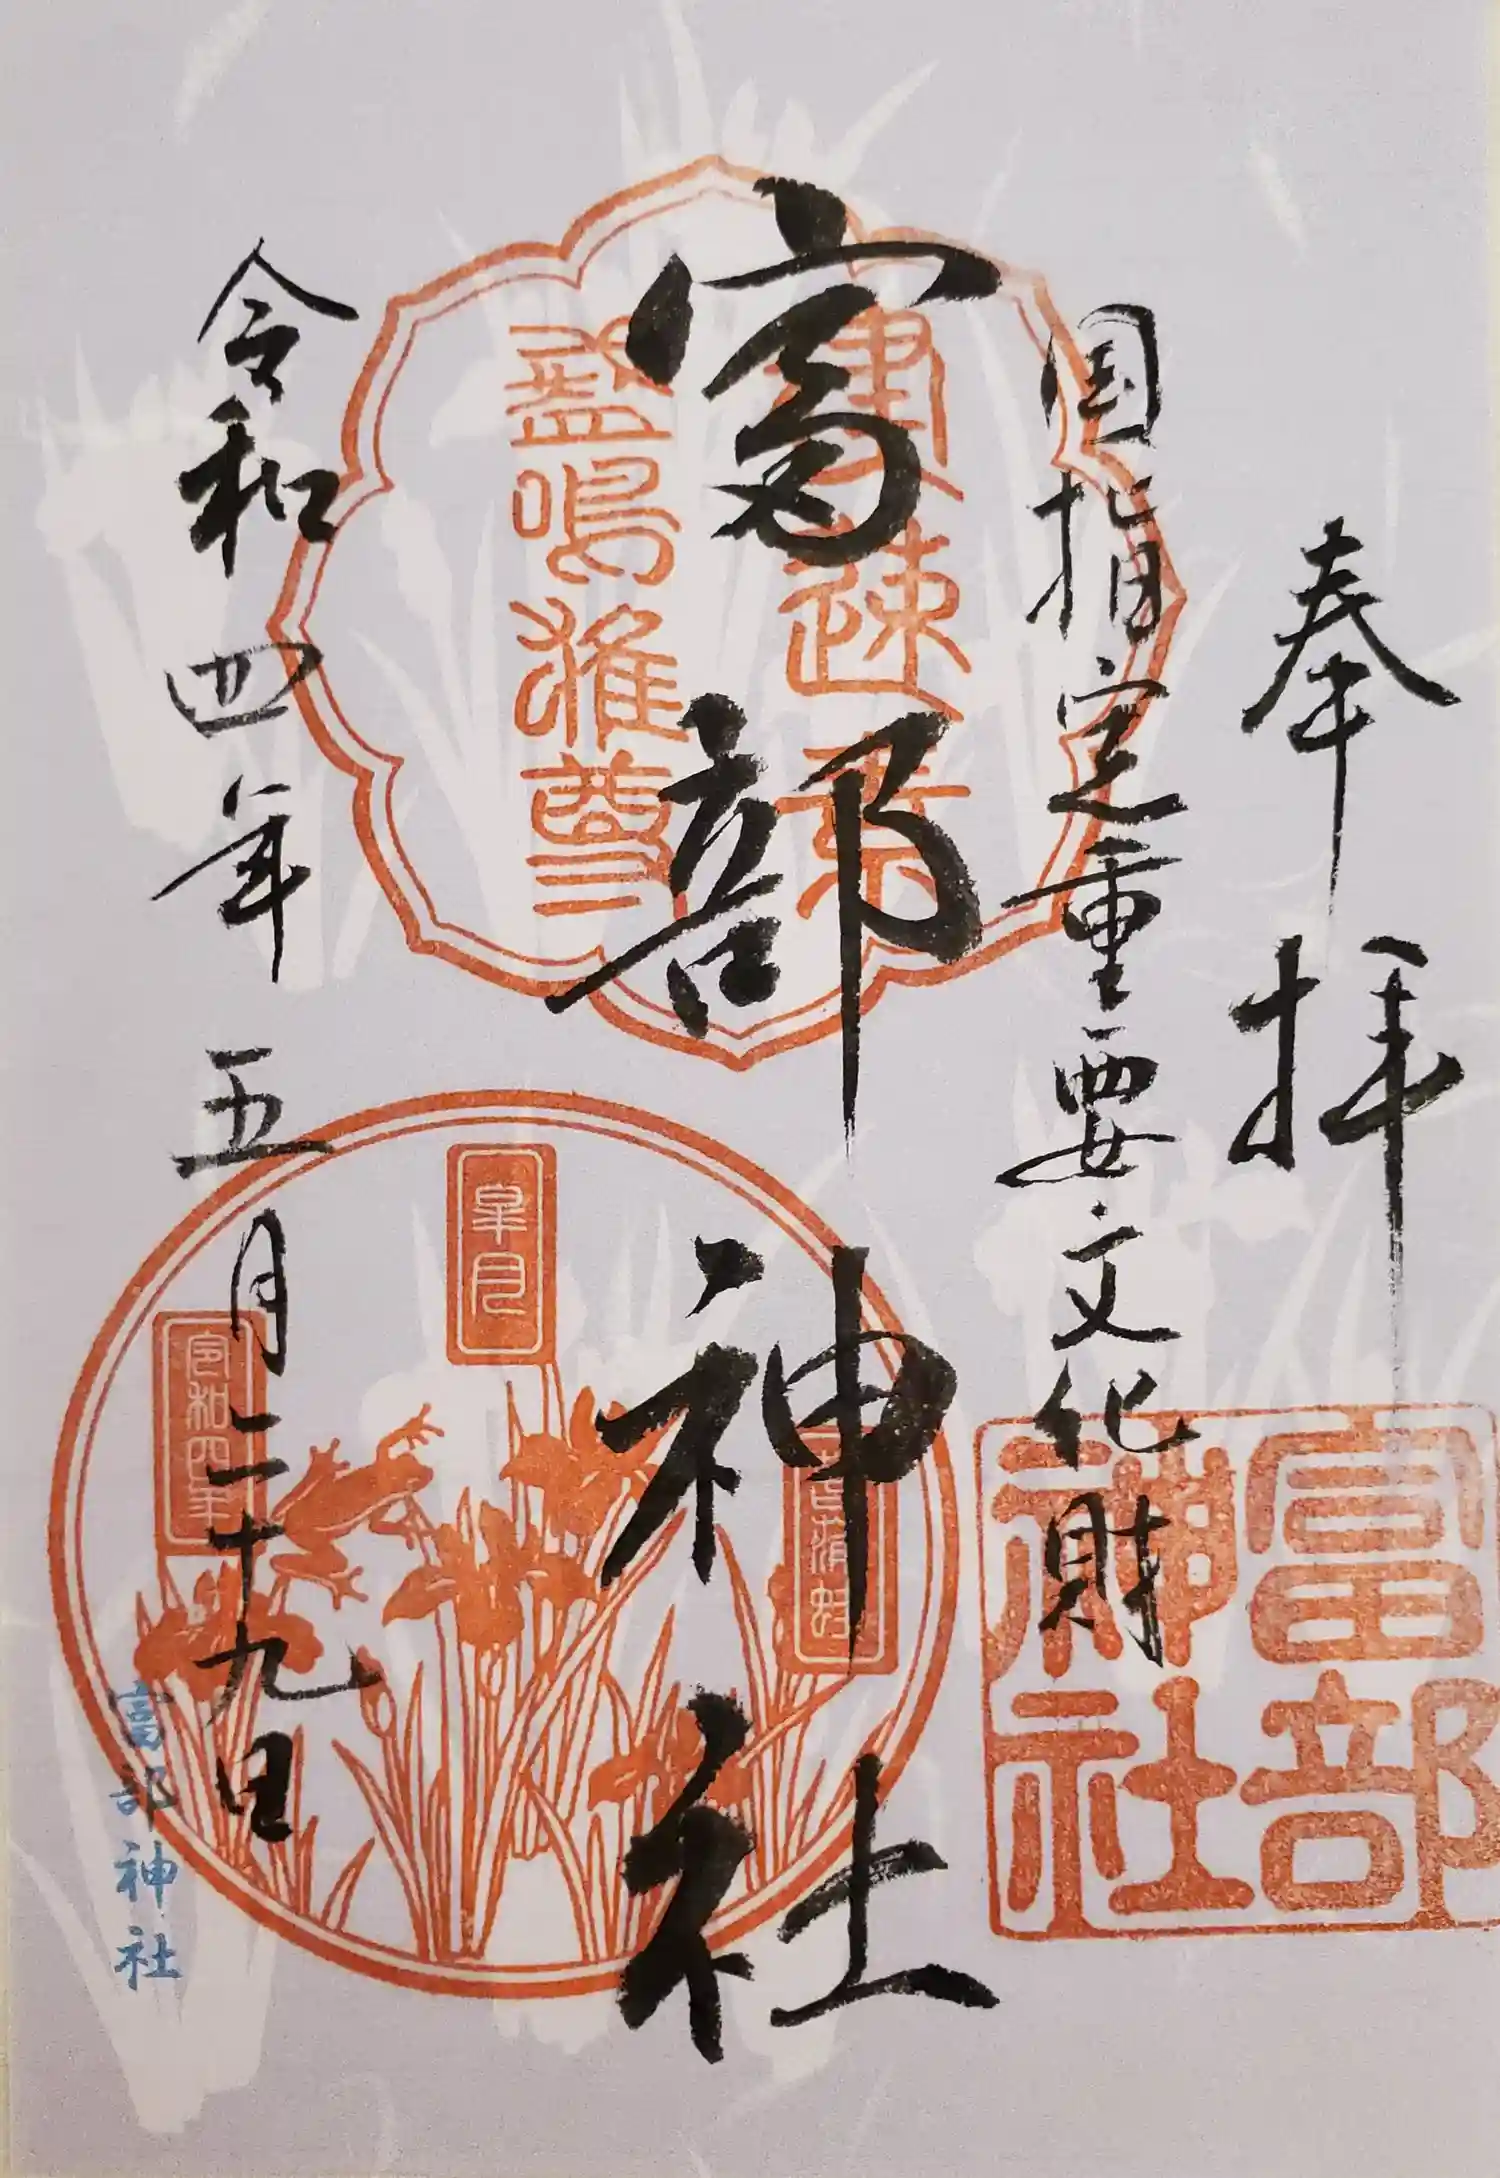 奉拝
国指定重要文化財
富部神社
令和四年五月二十九日
建速素
盞嗚雅尊
皐月
令和四年
富部
神社
富部神社